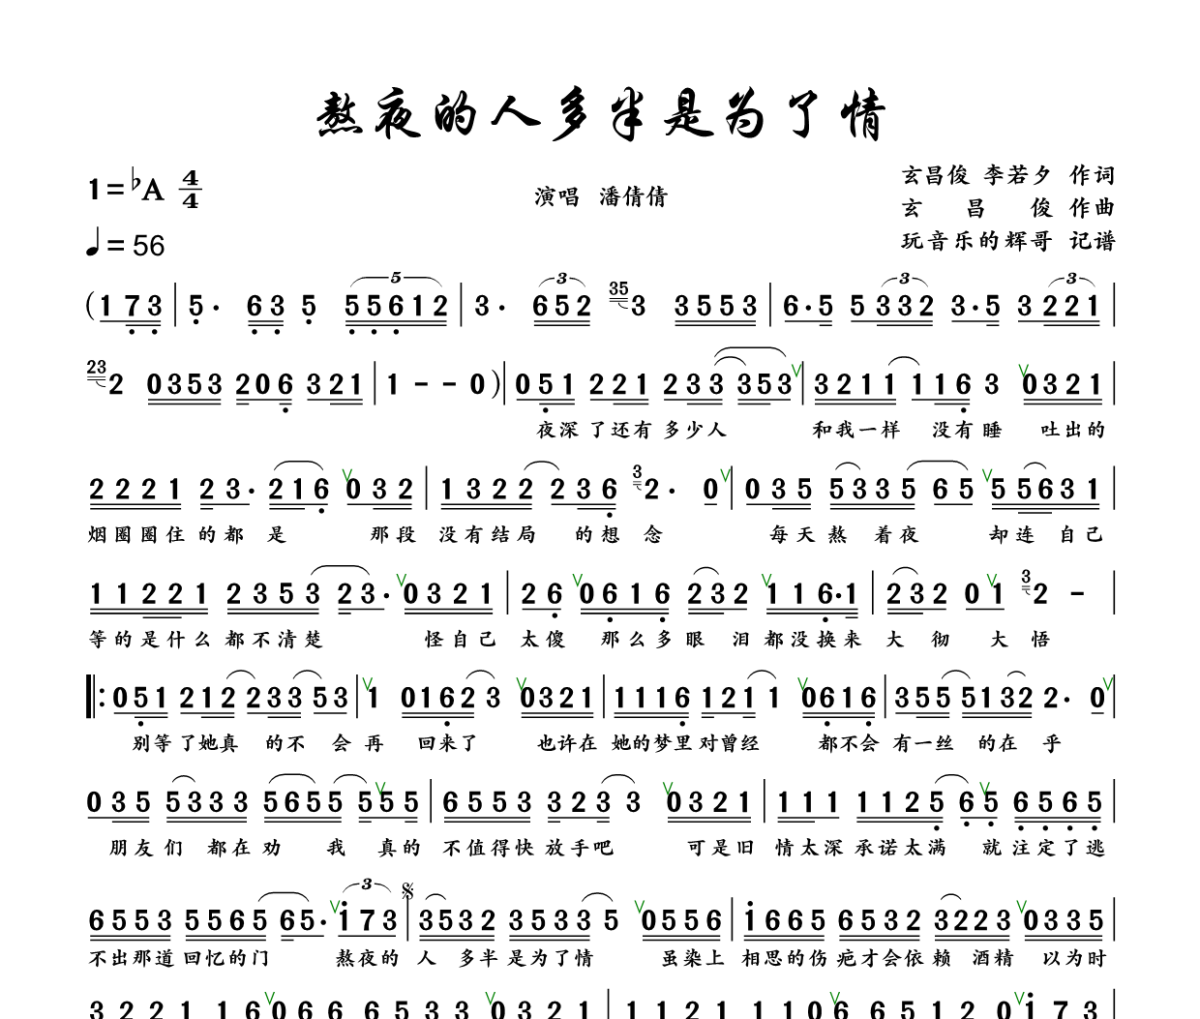 熬夜的人多半是为了情
1=♭A 4/4
演唱 潘倩倩
玄昌俊 李若夕 作词
玄 昌 俊 作曲
玩音乐的辉哥 记谱
♩= 56
(1 7 3 | 5· 6 3 5 5 5 6 1 2 | 3· 6 5 2 35 3 3 5 5 3 | 6·5 5 3 3 2 3·5 3 2 2 1 |
23 2 0 3 5 3 2 0 6 3 2 1 | 1 - - 0 ) | 0 5 1 2 2 1 2 3 3 3 5 3 | 3 2 1 1 1 1 6 3 0 3 2 1 |
夜深了还有多少人 和我一样 没有睡 吐出的
2 2 2 1 2 3· 2 1 6 0 3 2 | 1 3 2 2 2 3 6 3 2· 0 | 0 3 5 5 3 3 5 6 5 5 5 6 3 1 |
烟圈圈住的都是 那段 没有结局 的想念 每天熬着夜 却连自己
1 1 2 2 1 2 3 5 3 2 3· 0 3 2 1 | 2 6 0 6 1 6 2 3 2 1 1 6·1 | 2 3 2 0 1 3 2 - |
等的是什么都不清楚 怪自己 太傻 那么多眼泪都没换来 大彻大悟
‖: 0 5 1 2 1 2 2 3 3 5 3 | 1 0 1 6 2 3 0 3 2 1 | 1 1 1 6 1 2 1 1 0 6 1 6 | 3 5 5 5 1 3 2 2· 0 |
别等了她真的不会再 回来了 也许在 她的梦里对曾经 都不会 有一丝的在乎
0 3 5 5 3 3 3 5 6 5 5 5 5 5 | 6 5 5 3 3 2 3 3 0 3 2 1 | 1 1 1 1 1 2 5 6 5 6 5 6 5 |
朋友们 都在劝我 真的 不值得快放手吧 可是旧 情太深承诺太满 就注定了逃
6 5 5 3 5 5 6 5 6 5· 1 7 3 | 3 5 3 2 3 5 3 3 5 0 5 5 6 | 1 6 6 5 6 5 3 2 3 2 2 3 0 3 3 5 |
不出那道回忆的门 熬夜的 人 多半是为了情 虽染上 相思的伤疤才会依赖 酒精 以为时
3 2 2 1 1 6 0 6 6 6 5 3 3 0 3 2 1 | 1 1 2 1 1 1 0 6 6 5 1 2 0 1 7 3